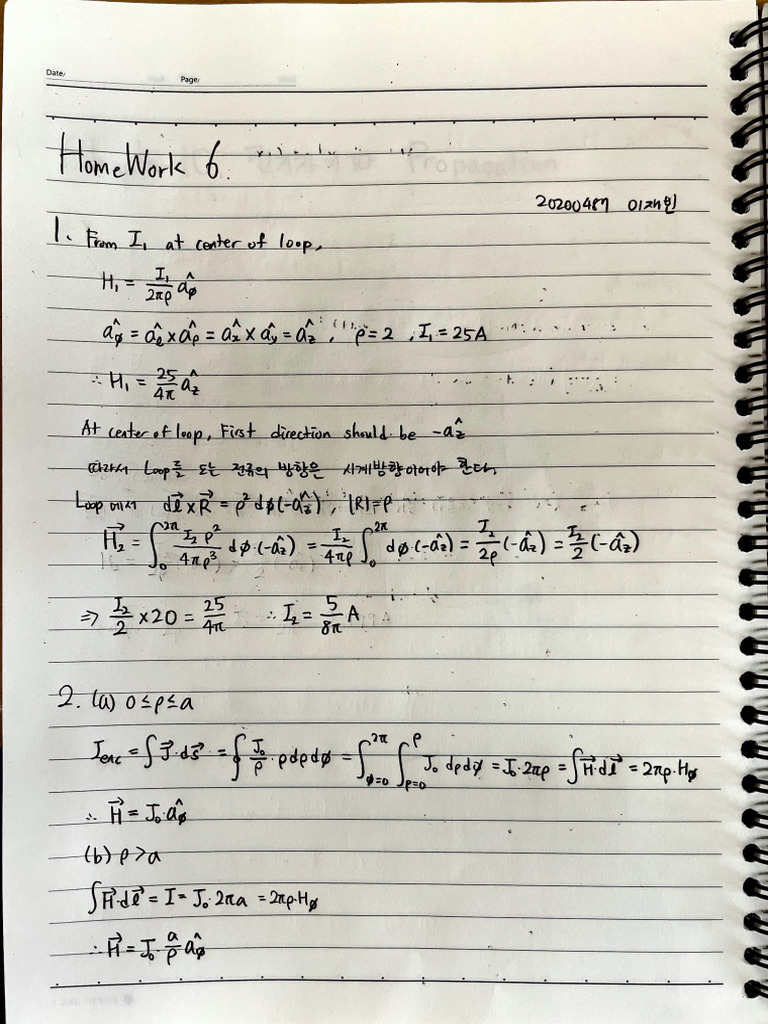 Date/ Page/
HomeWork 6.
20200487 이재인
1. From I₁ at center of loop,
H₁ = I₁/2πρ âϕ
âϕ = âℓ × âρ = âx × ây = âz, ρ = 2, I₁ = 25A
∴ H₁ = 25/4π âz
At center of loop, First direction should be -âz
따라서 Loop를 도는 전류의 방향은 시계방향이어야 한다.
Loop에서 dℓ⃗ × R⃗ = ρ² dϕ(-âz), |R| = ρ
H⃗₂ = ∫₀^2π I₂ρ²/4πρ³ dϕ·(-âz) = I₂/4πρ ∫₀^2π dϕ·(-âz) = I₂/2ρ (-âz) = I₂/2 (-âz)
⇒ I₂/2 × 20 = 25/4π ∴ I₂ = 5/8π A
2. (a) 0 ≤ ρ ≤ a
Ienc = ∫ J⃗·ds⃗ = ∮ J₀/ρ · ρdρdϕ = ∫_ϕ=0^2π ∫_ρ=0^ρ J₀ dρdϕ = J₀·2πρ = ∫ H⃗·dℓ⃗ = 2πρ·Hϕ
∴ H⃗ = J₀·âϕ
(b) ρ > a
∫ H⃗·dℓ⃗ = I = J₀·2πa = 2πρ·Hϕ
∴ H⃗ = J₀·a/ρ âϕ